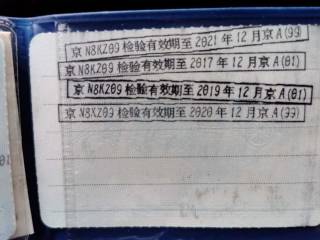 京N8KZ09检验有效期至2021年12月京A(99)
京N8KZ09检验有效期至2017年12月京A(01)
京N8KZ09检验有效期至2019年12月京A(01)
京N8XZ09检验有效期至2020年12月京A(99)